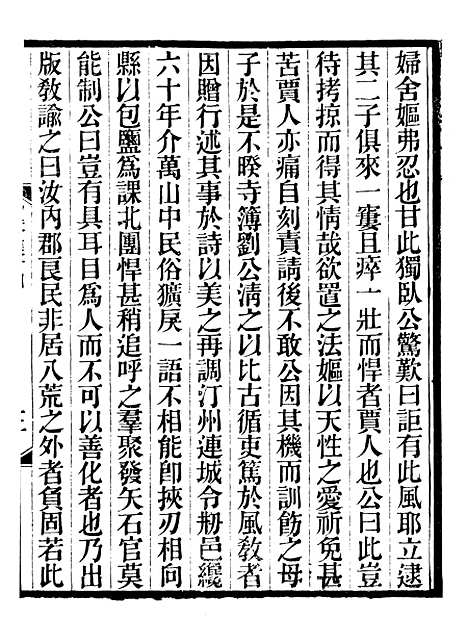 婦舍嫗弗忍也甘此獨臥公驚歎曰詎有此風耶立逮
其二子俱來一寠且瘁一壯而悍者賈人也公曰此豈
待拷掠而得其情哉欲置之法嫗以天性之愛祈免甚
苦賈人亦痛自刻責請後不敢公因其機而訓飭之母
子於是不睽寺簿劉公淸之以比古循吏篤於風敎者
因贈行述其事於詩以美之再調汀州連城令剏邑纔
六十年介萬山中民俗獷戾一語不相能卽挾刃相向
縣以包鹽爲課北團悍甚稍追呼之羣聚發矢石官莫
能制公曰豈有具耳目爲人而不可以善化者也乃出
版敎諭之曰汝內郡良民非居八荒之外者負固若此